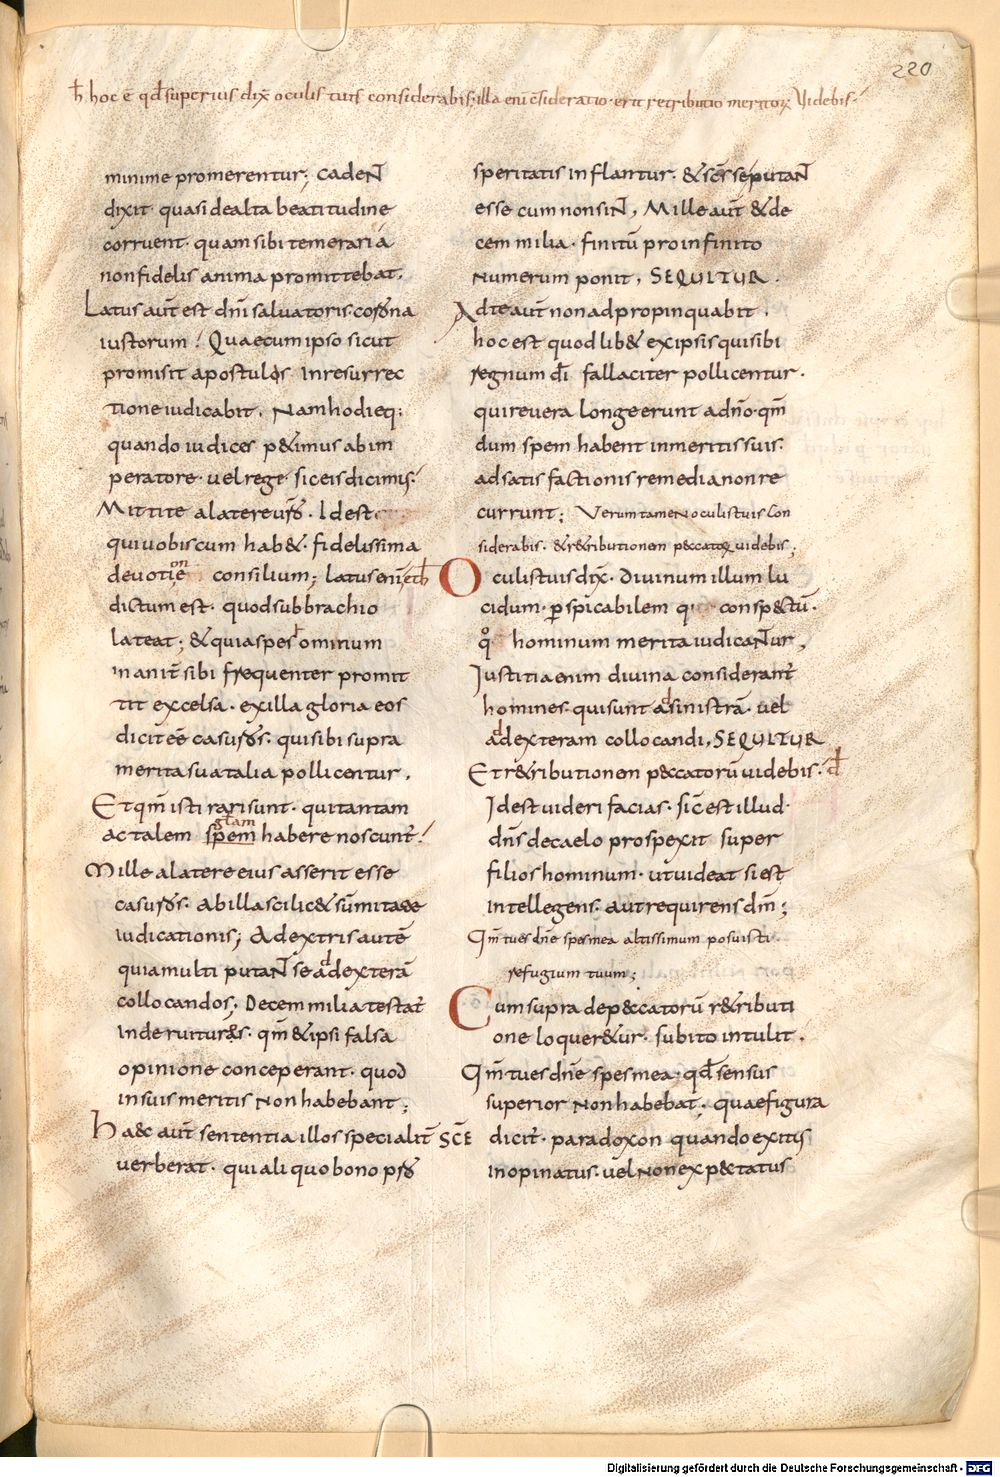 220
h hoc ē qđ superius dix̄ oculis tuis considerabis; illa eni c̄sideratio· erit retributio meritoꝝ Videbis·
minime promerentur; CadeNT
dixit· quasi de alta beatitudine
corruent· quam sibi temeraria
non fidelis anima promittebat.
Latus aut̄ est dn̄i salvatoris·
iustorum! Quae cum ipso sicut
promisit apostulos In resurrec
tione iudicabit. Nam hodieq;
quando iudices p&imus ab im
peratore· uel rege· sic eis dicimus!
Mittite a latere· Idest
qui uobiscum hab&· fidelissima
consilium; latus eni
dictum est· quod sub brachio
lateat; & quia spes ominum
inanit̄ sibi frequenter promit
tit excelsa· ex illa gloria eos
qui sibi supra
merita sua talia pollicentur.
Et qm̄ isti rari sunt· qui tantam
glam
ac talem spem habere noscunt̄!
Mille a latere eius asserit esse
ab illa scilic& sūmitate
iudicationis; Ad extris autē
quia multi putaNT se ad dexterā
collocandos· Decem milia testat̄
inde ruituros· qm̄ & ipsi falsa
opinione conceperant· quod
in suis meritis Non habebant;
Haec aut̄ sententia illos specialit̄
uerberat· qui aliquo bono
SCĒ
speritatis inflantur· & sc̄s se putaNT
esse cum non siNT, Mille aut̄ & de
cem milia· finitū pro infinito
Numerum ponit, SEQUITUR·
Ad te aut̄ non adpropinquabit·
hoc est quod lib& ex ipsis qui sibi
regnum dī fallaciter pollicentur·
qui reuera longe erunt a dn̄o· qm̄
dum spem habent in meritis suis·
ad satisfactionis remedia non re
currunt; Verum tameN oculis tuis Con
siderabis· & r&ributionem p&catoꝝ uidebis;
Oculis tuis dix̄· Diuinum illum lu
cidum· perspicabilem q· consp&tū·
q hominum merita iudicaNTur,
Iustitia enim diuina considerant̄
homines· qui sunt ad sinistrā· uel
ad dexteram collocandi, SEQUITUR
Et r&ributionem p&catorū uidebis·
Idest uideri facias· sic̄ est illud·
dn̄s de caelo prospexit super
filios hominum· ut uideat si est
intellegens· aut requirens dm̄;
Qm̄ tu es dn̄e spes mea altissimum posuisti·
refugium tuum;
Cum supra de p&catorū r&ributi
one loquer&ur· subito intulit·
Qm̄ tu es dn̄e spes mea· qđ sensus
superior Non habebat· quae figura
dicit̄· paradoxon quando exitus
inopinatus· uel Non exp&tatus
Digitalisierung gefördert durch die Deutsche Forschungsgemeinschaft - DFG